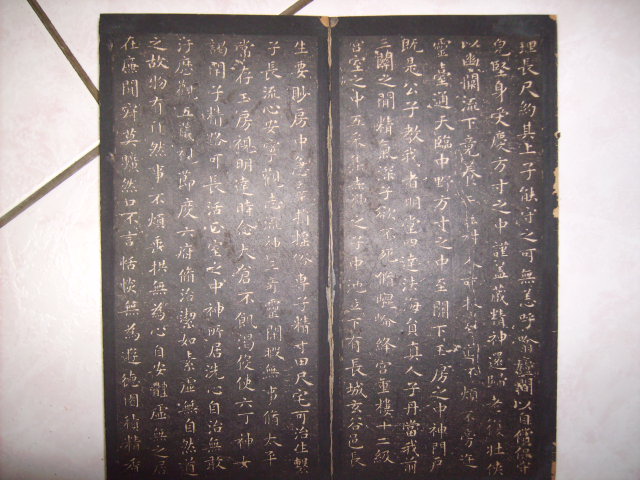 理長尺約其上子能守之可無恙呼噏廬間以自償保守
皃堅身受慶方寸之中謹蓋藏精神還歸老復壯俠
以幽闕流下竟養
不煩不旁迕
靈臺通天臨中野方寸之中至關下玉房之中神門戶
既是公子教我者明堂四達法海負真人子丹當我前
三關之間精氣深子欲不死脩崐崘絳宮重樓十二級
宮室之中五采集赤神之子中池立下有長城玄谷邑長
生要眇房中急棄捐搖俗專子精寸田尺宅可治生繫
子長流心安寧觀志流神三奇靈閑暇無事脩太平
常存玉房視明達時念大倉不飢渴役使六丁神女
謁閉子精路可長活正室之中神所居洗心自治無敢
汙歷觀五藏視節度六府脩治潔如素虛無自然道
之故物有自然事不煩垂拱無為心自安體虛無之居
在廉間寂莫曠然口不言恬惔無為遊德園積精香